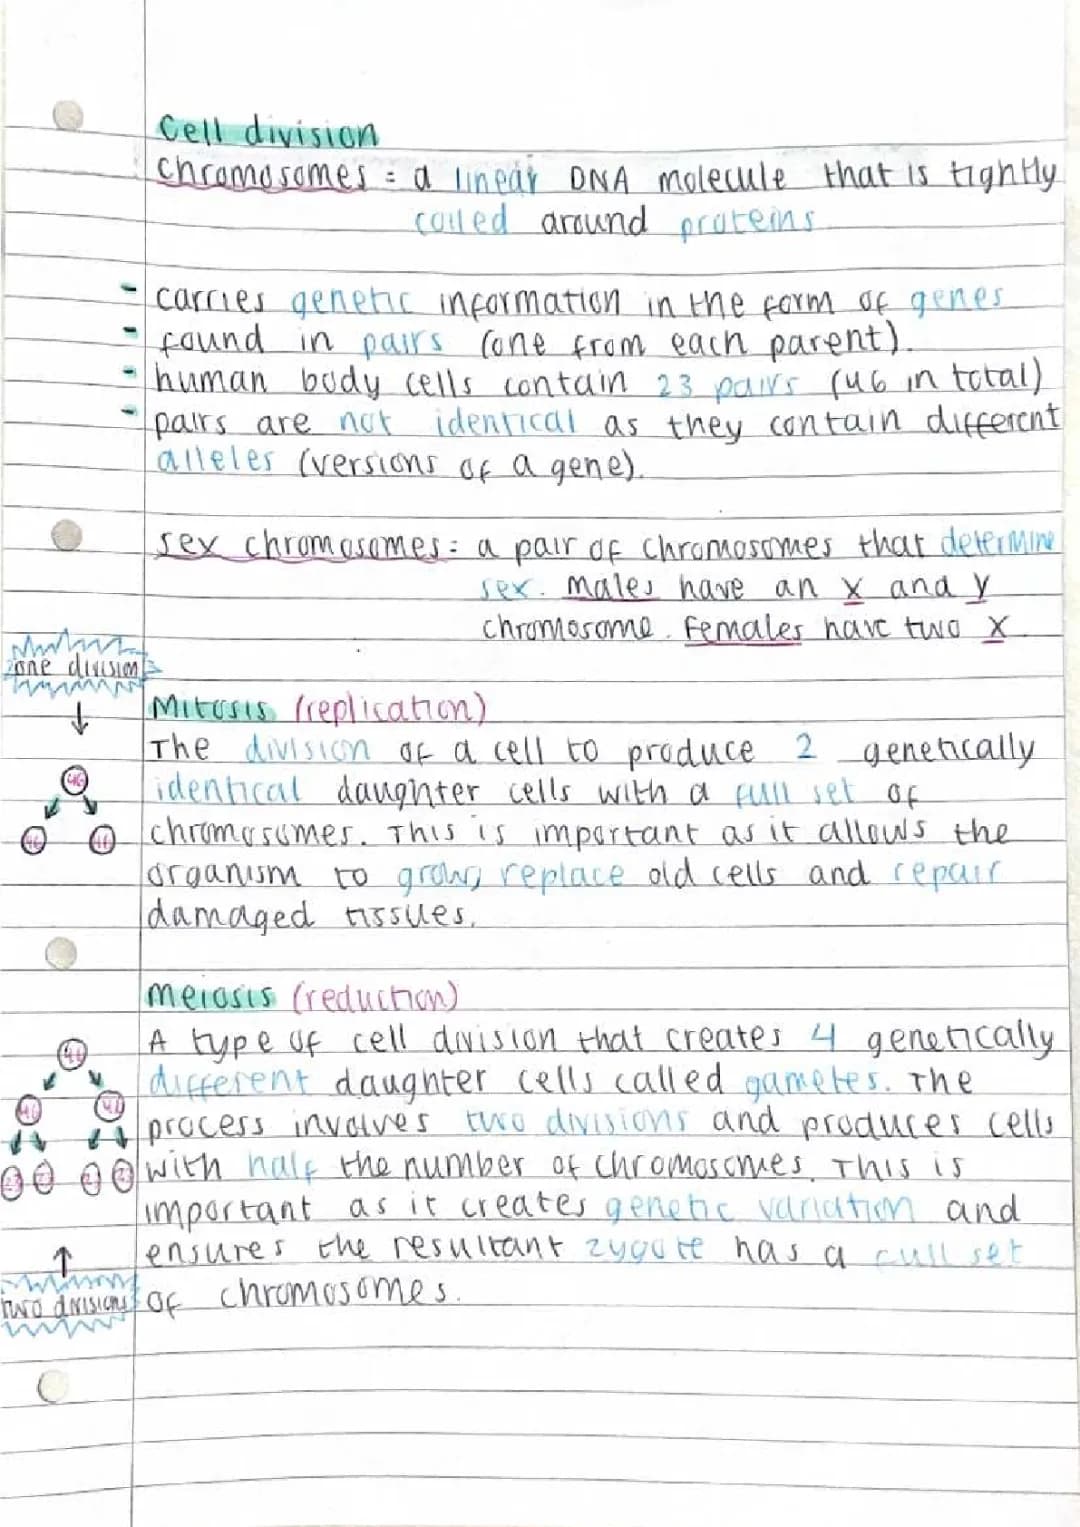 Cell division
chromosomes = a linear DNA molecule that is tightly
coiled around proteins
- carries genetic information in the form of genes
- found in pairs (one from each parent).
- human body cells contain 23 pairs (46 in total)
- pairs are not identical as they contain different
alleles (versions of a gene).
sex chromosomes: a pair of chromosomes that determine
sex. Males have an x and y
chromosome. Females have two x
one division
↓
Mitosis (replication)
The division of a cell to produce 2 genetically
identical daughter cells with a full set of
chromosomes. This is important as it allows the
organism to grow, replace old cells and repair
damaged tissues.
46
46 46
Meiosis (reduction)
A type of cell division that creates 4 genetically
different daughter cells called gametes. The
process involves two divisions and produces cells
with half the number of chromosomes. This is
important as it creates genetic variation and
ensures the resultant zygote has a full set
of chromosomes.
46
46
23 23 23 23
↑
two divisions